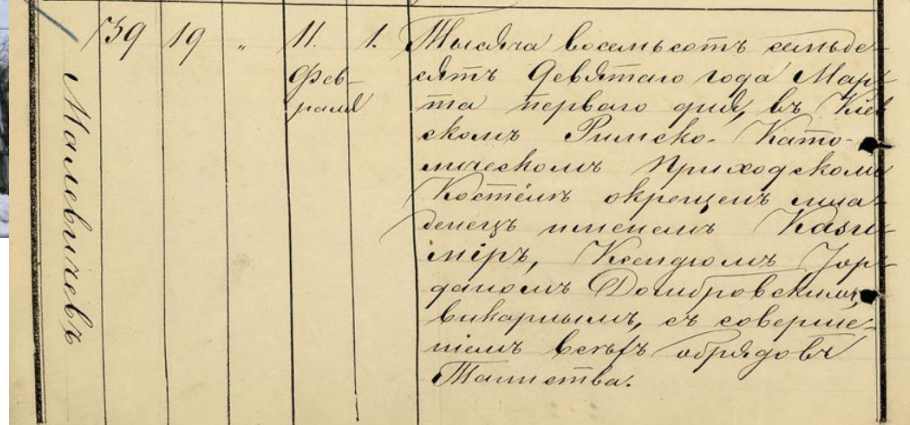 Малевичевъ
739 19 „ 11. 1.
Февраля
Тысяча восемьсотъ семьде-
сятъ девятаго года Мар-
та перваго дня, въ Кіев
скомъ Римско-Като-
лическомъ Приходскомъ
Костёлѣ окрещенъ мла-
денецъ именемъ Кази-
міръ, Ксендзомъ Іор-
даномъ Домбровскимъ,
викарнымъ, съ соверше-
ніемъ всѣхъ обрядовъ
Таинства.